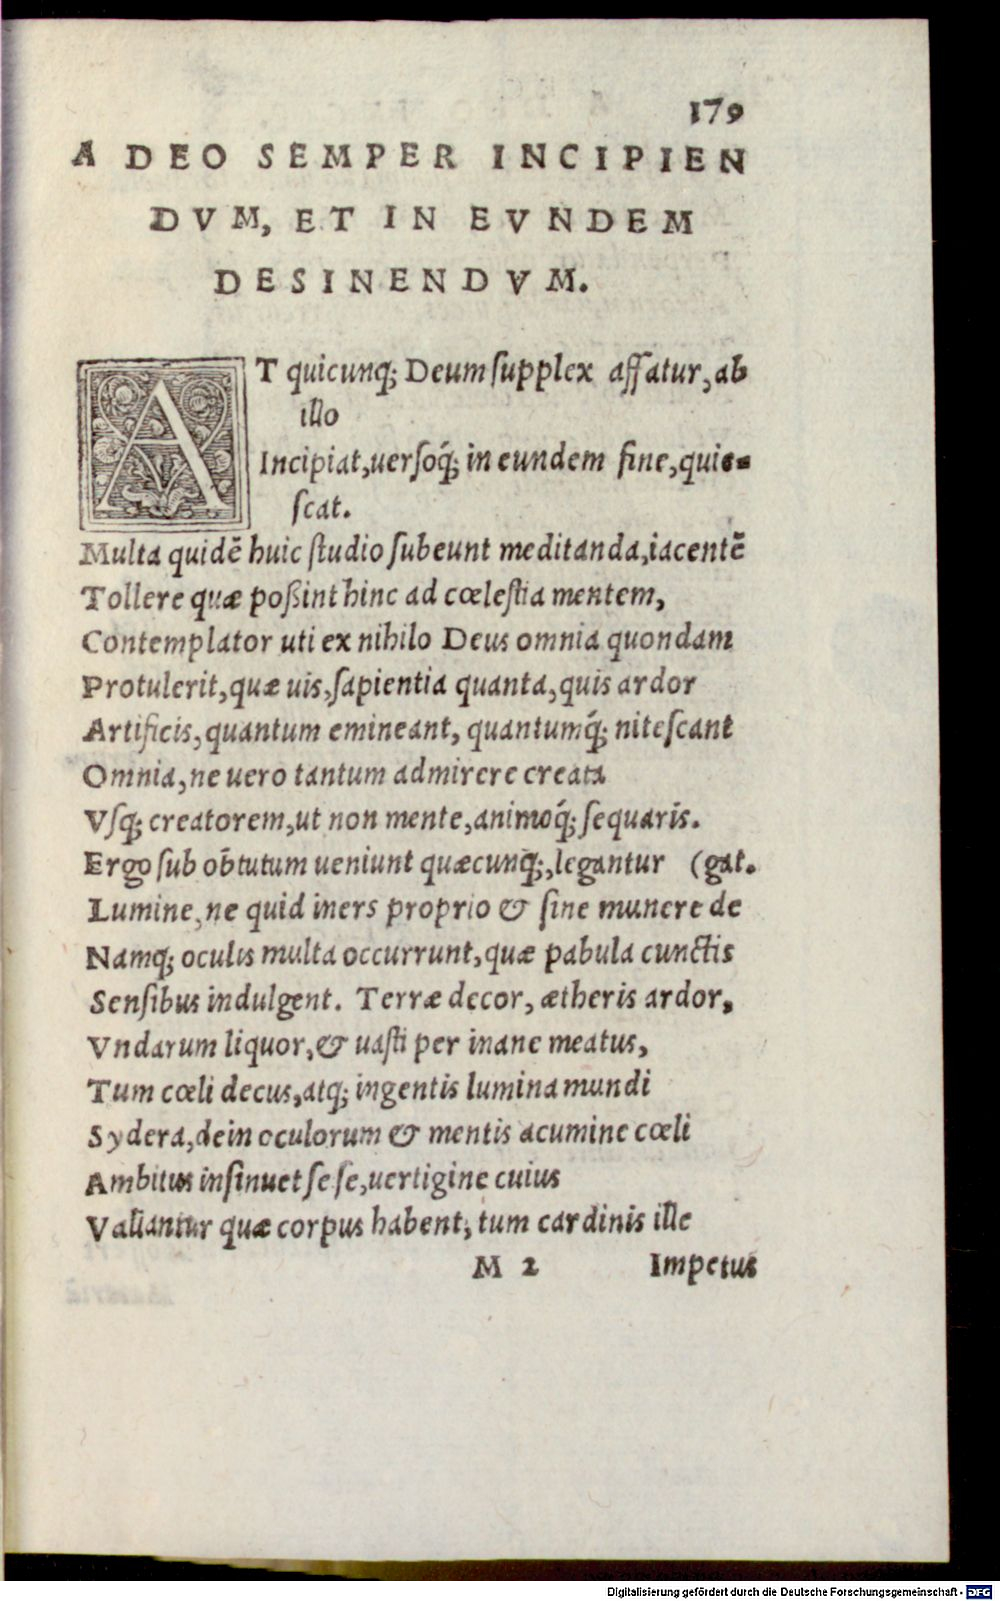 179
A DEO SEMPER INCIPIEN
DVM, ET IN EVNDEM
DESINENDVM.
AT quicunq; Deum ſupplex affatur, ab
illo
Incipiat, uerſoq́; in eundem fine, quie-
ſcat.
Multa quidē huic ſtudio ſubeunt meditanda, iacentē
Tollere quæ poßint hinc ad cœleſtia mentem,
Contemplator uti ex nihilo Deus omnia quondam
Protulerit, quæ uis, ſapientia quanta, quis ardor
Artificis, quantum emineant, quantumq́; niteſcant
Omnia, ne uero tantum admirere creata
Vſq; creatorem, ut non mente, animoq́; ſequaris.
Ergo ſub obtutum ueniunt quæcunq;, legantur (gat.
Lumine, ne quid iners proprio & ſine munere de
Namq; oculis multa occurrunt, quæ pabula cunctis
Senſibus indulgent. Terræ decor, ætheris ardor,
Vndarum liquor, & uaſti per inane meatus,
Tum cœli decus, atq; ingentis lumina mundi
Sydera, dein oculorum & mentis acumine cœli
Ambitus inſinuet ſe ſe, uertigine cuius
Vallantur quæ corpus habent; tum cardinis ille
M 2 Impetus
Digitalisierung gefördert durch die Deutsche Forschungsgemeinschaft - DFG